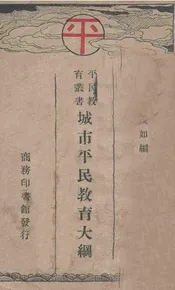 平
平民教
育叢書
城市平民教育大綱
編
商務印書館發行